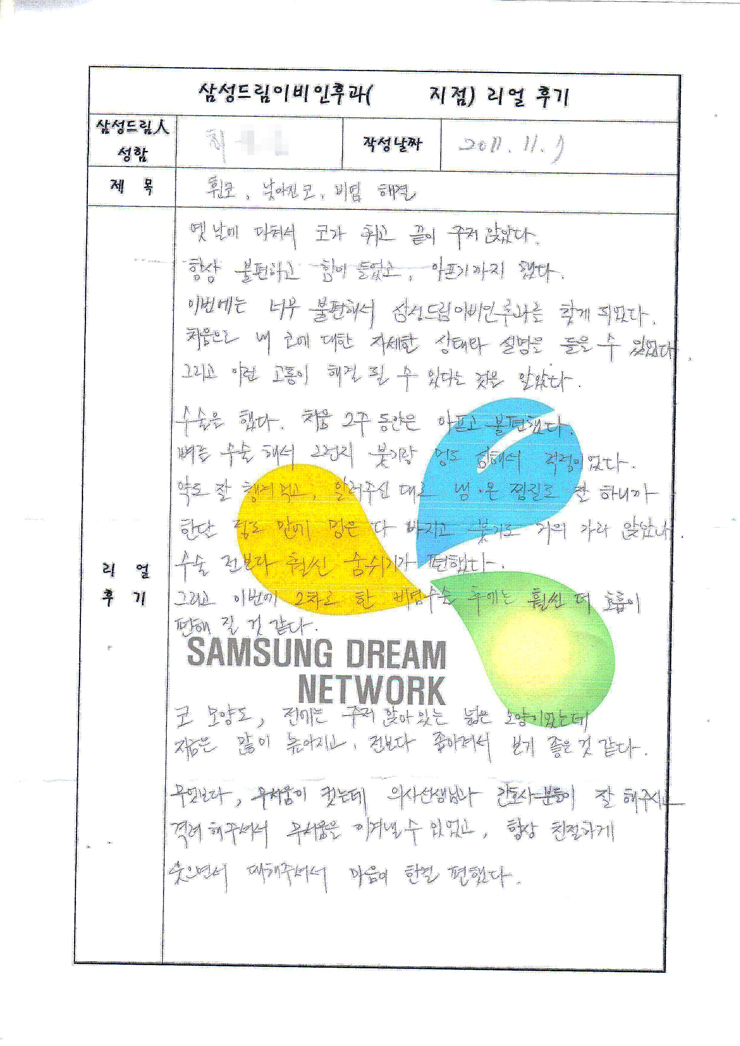 삼성드림이비인후과( 지점) 리얼 후기
삼성드림人 성함 최 작성날짜 2011. 11. 7
제 목 휜코, 낮아진 코, 비염 해결
리 얼 후 기
옛날에 다쳐서 코가 휘고 끝이 주저 앉았다.
항상 불편하고 힘이 들었고, 아프기까지 했다.
이번에는 너무 불편해서 삼성드림이비인후과를 찾게 되었다.
처음으로 내 코에 대한 자세한 상태와 설명을 들을 수 있었다.
그리고 이런 고통이 해결 될 수 있다는 것을 알았다.
수술은 했다. 처음 2주 동안은 아프고 불편했다.
뼈를 수술해서 그런지 붓기랑 멍도 심해서 걱정이었다.
약도 잘 챙겨먹고, 알려주신 대로 냉·온 찜질도 잘 하니까
한달 정도 만에 멍은 다 빠지고 붓기도 거의 가라 앉았다.
수술 전보다 훨씬 숨쉬기가 편했다.
그리고 이번에 2차로 한 비염수술 후에는 훨씬 더 호흡이
편해 질 것 같다.
SAMSUNG DREAM
NETWORK
코 모양도, 전에는 주저 앉아 있는 넓은 모양이었는데
지금은 많이 높아지고, 전보다 좁아져서 보기 좋은 것 같다.
무엇보다, 무서움이 컸는데 의사선생님과 간호사분들이 잘 해주시고
격려 해주셔서 무서움을 이겨낼 수 있었고, 항상 친절하게
웃으면서 대해주셔서 마음이 한결 편했다.